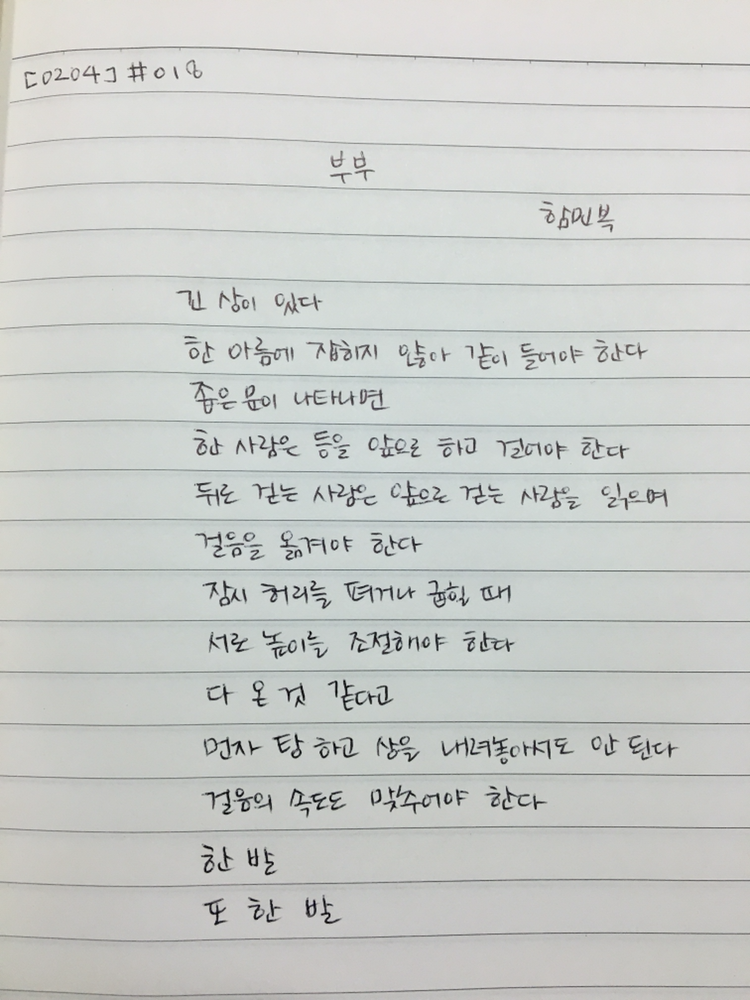 [0204] #018
부부
함민복
긴 상이 있다
한 아름에 잡히지 않아 같이 들어야 한다
좁은 문이 나타나면
한 사람은 등을 앞으로 하고 걸어야 한다
뒤로 걷는 사람은 앞으로 걷는 사람을 읽으며
걸음을 옮겨야 한다
잠시 허리를 펴거나 굽힐 때
서로 높이를 조절해야 한다
다 온 것 같다고
먼저 탕 하고 상을 내려놓아서도 안 된다
걸음의 속도도 맞추어야 한다
한 발
또 한 발